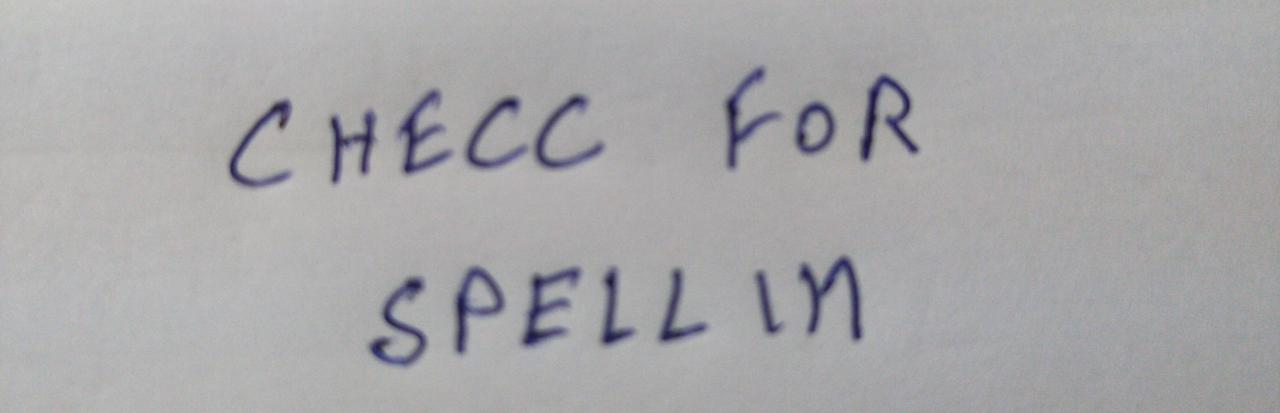 CHECC FOR
SPELLIN